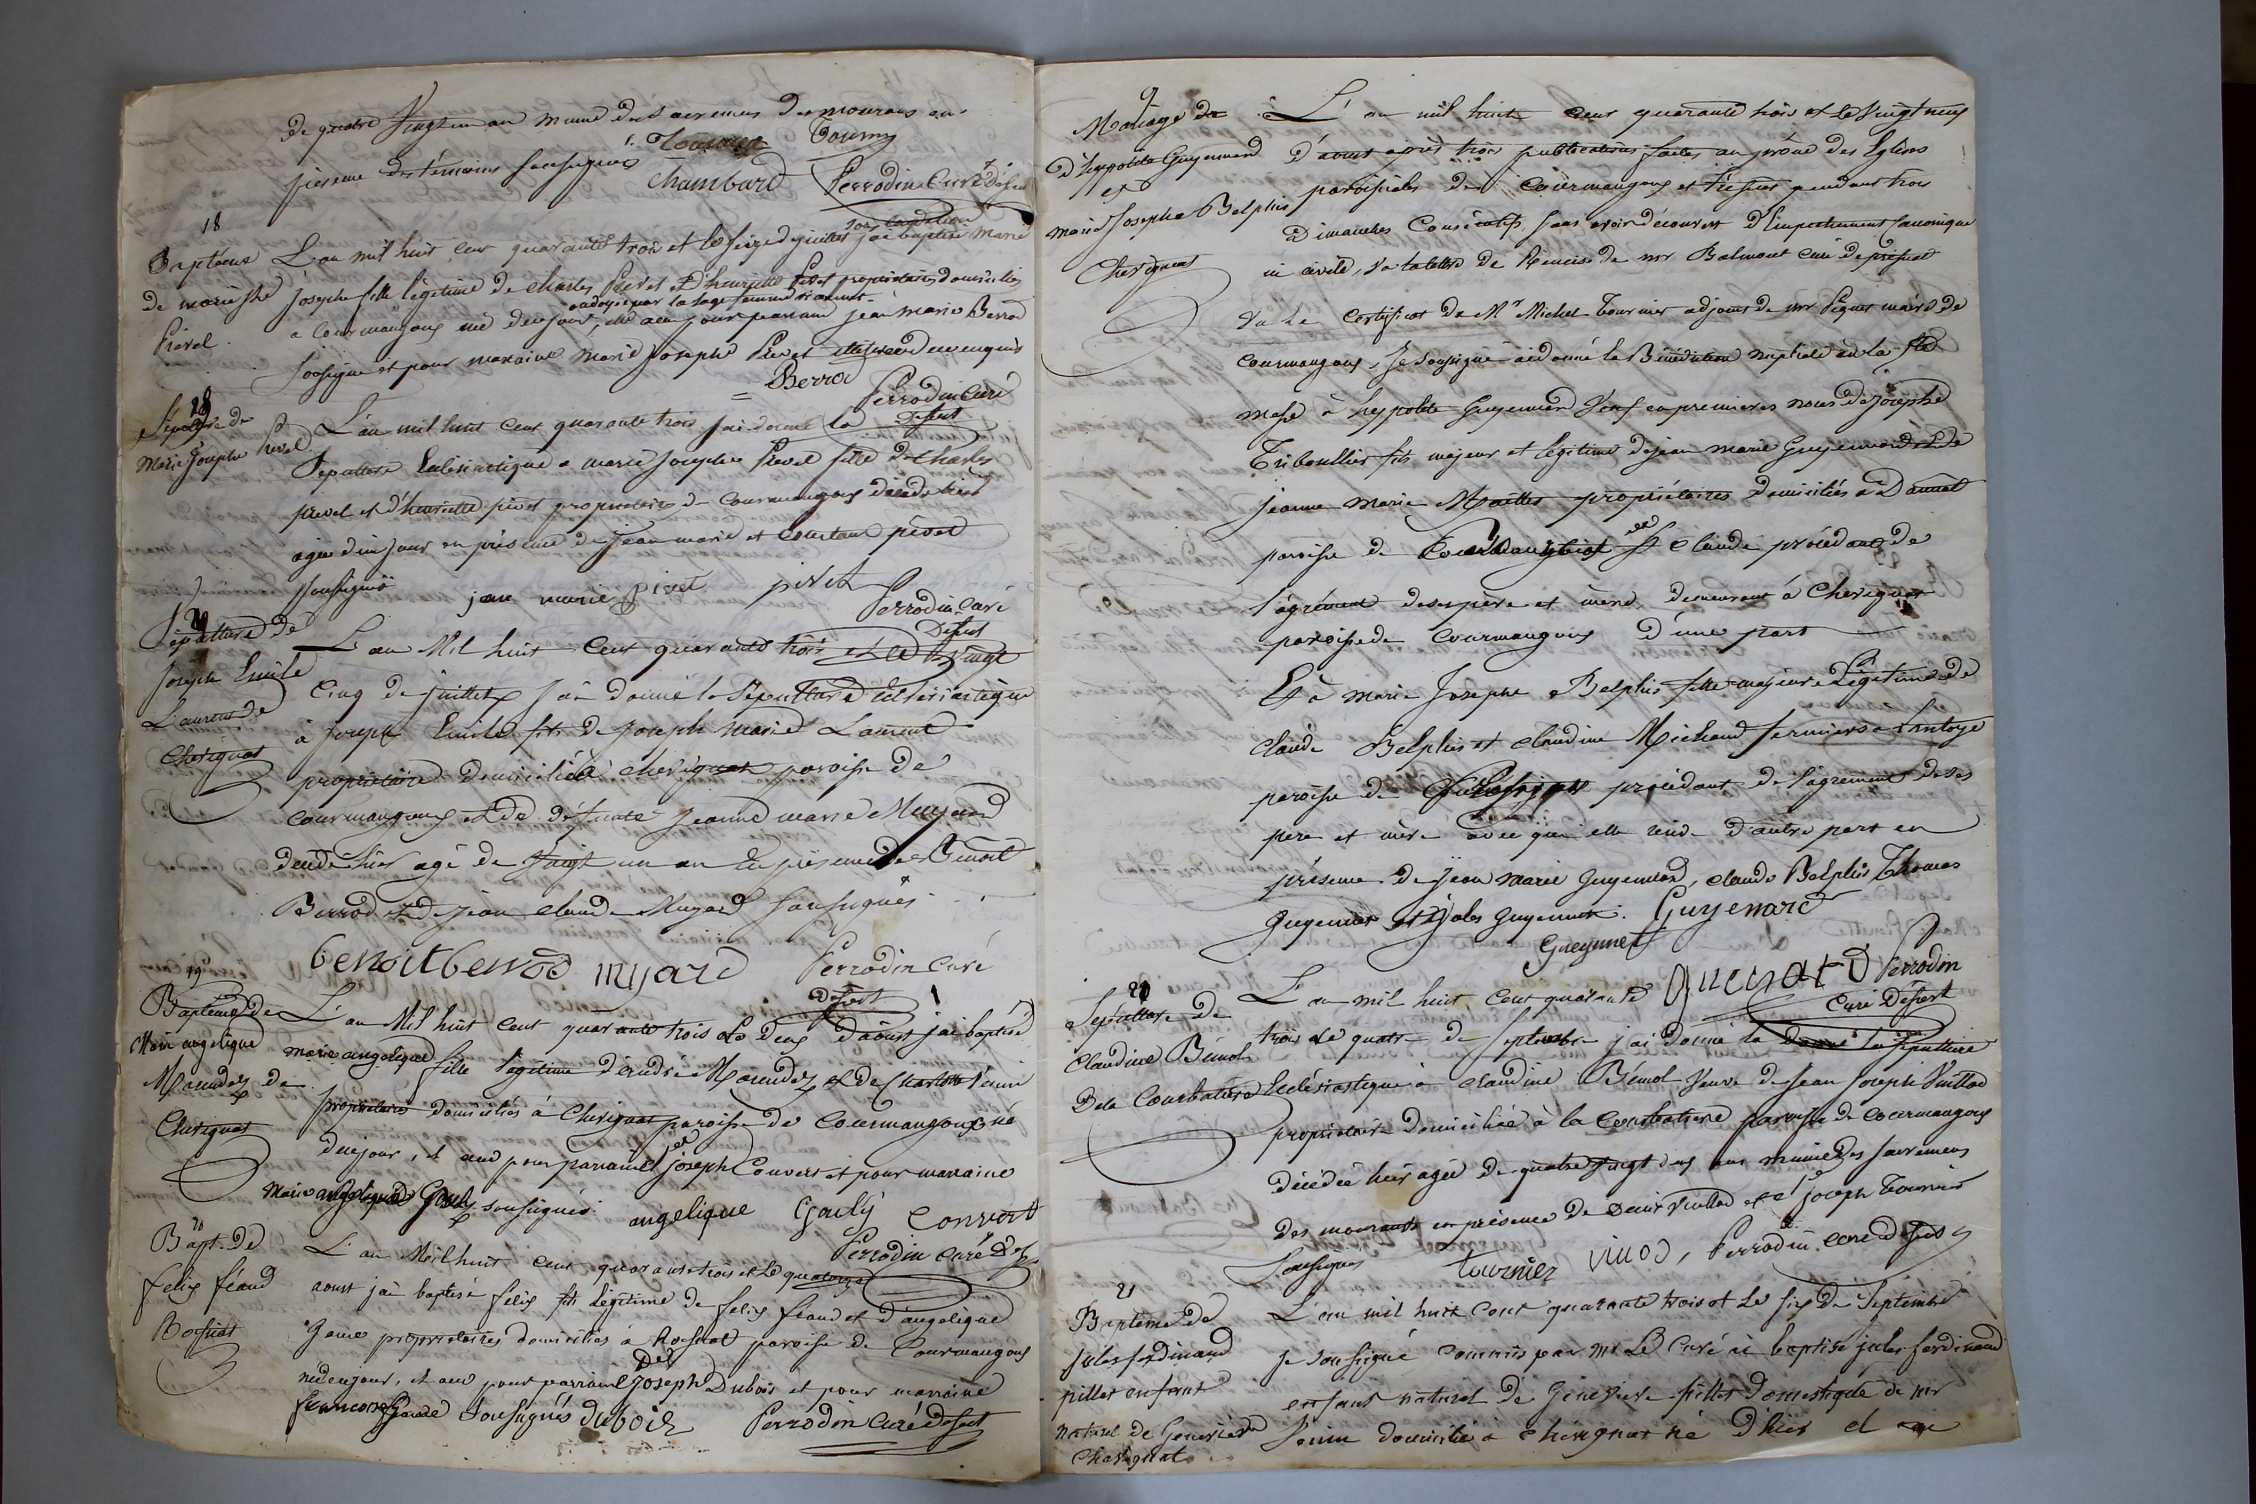 de quatre Vingt un an munie des sacremens des mourans en
présence des témoins soussignés Tournier Tourny
Chambard Perrodin Curé Desert
18
Baptême
de marie Jphe
Pievet
sous condition
L'an mil huit cent quarante trois et le seize de juillet j'ai baptisé Marie
Josephe fille légitime de Charles Pievet et D'henriette Pivet propriétaires domiciliés
ondoyée par la sage femme
à Courmangoux née de ce jour, elle a eu pour parrain jean marie Berrod
Soussigné et pour marraine Marie Josephe Pievet de ce enquis
Berrod Perrodin curé
Desert
18
Sépulture de
Marie Josephe Pievel
L'an mil huit cent quarante trois j'ai donné la
Sepulture Ecclésiastique a marie josephe Pievel fille de Charles
pievel et d'henriette pivet propriétaires de Courmangoux décédée hier
agée d'un jour en présence de jean marie et Constant pievet
soussignés jean marie pivet pivet Perrodin curé
Desert
20
Sépulture de
Joseph Emile
Laurent de
Chevignat
L'an Mil huit cent quarante trois et le Vingt
Cinq de juillet j'ai donné la Sépulture Ecclésiastique
à joseph Emile fils de Joseph Marie Laurent
propriétaire domicilié à Chevignat paroisse de
Courmangoux et de défunte Jeanne marie Muyard
décédé hier agé de Vingt un an En présence de Benoit
Berrod et de Jean Claude Muyard soussignés
benoit berrod muyard Perrodin Curé
Desert
19
Baptême de
Marie angelique
Maendez de
Chevignat
L'an Mil huit cent quarante trois et le deux d'aoust j'ai baptisé
marie angelique fille légitime d'andré Maendez et de Charlotte
propriétaires domiciliés à Chevignat paroisse de Courmangoux né
de ce jour, et a eu pour parrain joseph Convert et pour marraine
Marie angelique Gauly soussignés. angelique Gauly Convert
Perrodin curé Desert
20
Bapt. de
felix féaud
Rochat
L'an Mil huit cent quarante trois et le quatorze
aoust j'ai baptisé felix fils légitime de felix féaud et d'angelique
Game propriétaires domiciliés à Rochat paroisse de Courmangoux
né de ce jour, et a eu pour parrain Joseph Dubois et pour marraine
francoise Game Soussignés dubois Perrodin curé desert
9
Mariage de
d'hyppolite Guyennard
et
marie Josephe Belphis
Chevignat
L'an mil huit cent quarante trois et le Vingt neuf
d'aoust après trois publications faites au prône des Eglises
paroissiales de Courmangoux et Présiat pendant trois
Dimanches Consécutifs sans avoir découvert d'Empêchement Canonique
ni civile, Vu la lettre de Remise de mr Balmont curé de présiat
Vu le certificat de Mr Michel Tournier adjoint de mr Piquet maire de
courmangoux, je soussigné ai donné la Bénédiction nuptiale en la Ste
messe à hyppolite Guyennard Veuf en premieres noces de josephe
Triboullier fils majeur et légitime de jean marie Guyennard et de
jeanne Marie Maillet propriétaires domiciliés à Donnat
paroisse de St Claude procédant de
l'agrément de ses père et mère demeurant à Chevignat
paroisse de Courmangoux d'une part
Et à Marie Josephe Belphis fille majeure et Légitime de
Claude Belphis et Claudine Michaud fermiers à
paroisse de procédant de l'agrément de ses
pere et mère avec qui elle reside d'autre part en
présence de Jean Marie Guyennard, Claude Belphis Thomas
Guyennet et Jules Guyennet. Guyenard
Gueynnet guenard Perrodin
curé Désert
21
Sépulture de
Claudine Bénot
De la Courbatière
L'an mil huit cent quarante
trois et le quatre de septembre j'ai donné la donné la sépulture
Ecclésiastique à Claudine Bénot Veuve de Jean Joseph Vuillod
propriétaire domiciliée à la Courbatiere paroisse de Courmangoux
décédée hier agée de quatre vingt deux ans munie des sacremens
des mourants en présence de Denis Vuillod et de joseph Tournier
Soussignés tournier vuiod, Perrodin curé desert
21
Baptême de
Jules ferdinand
pillet enfant
naturel de Genevieve
Chavignat
L'an mil huit cent quarante trois et le six de Septembre
Je soussigné commis par Mr Le Curé ai baptisé jules ferdinand
enfant naturel de Genevieve pillet domestique de mr
domicilié à chevignat né d'hier et